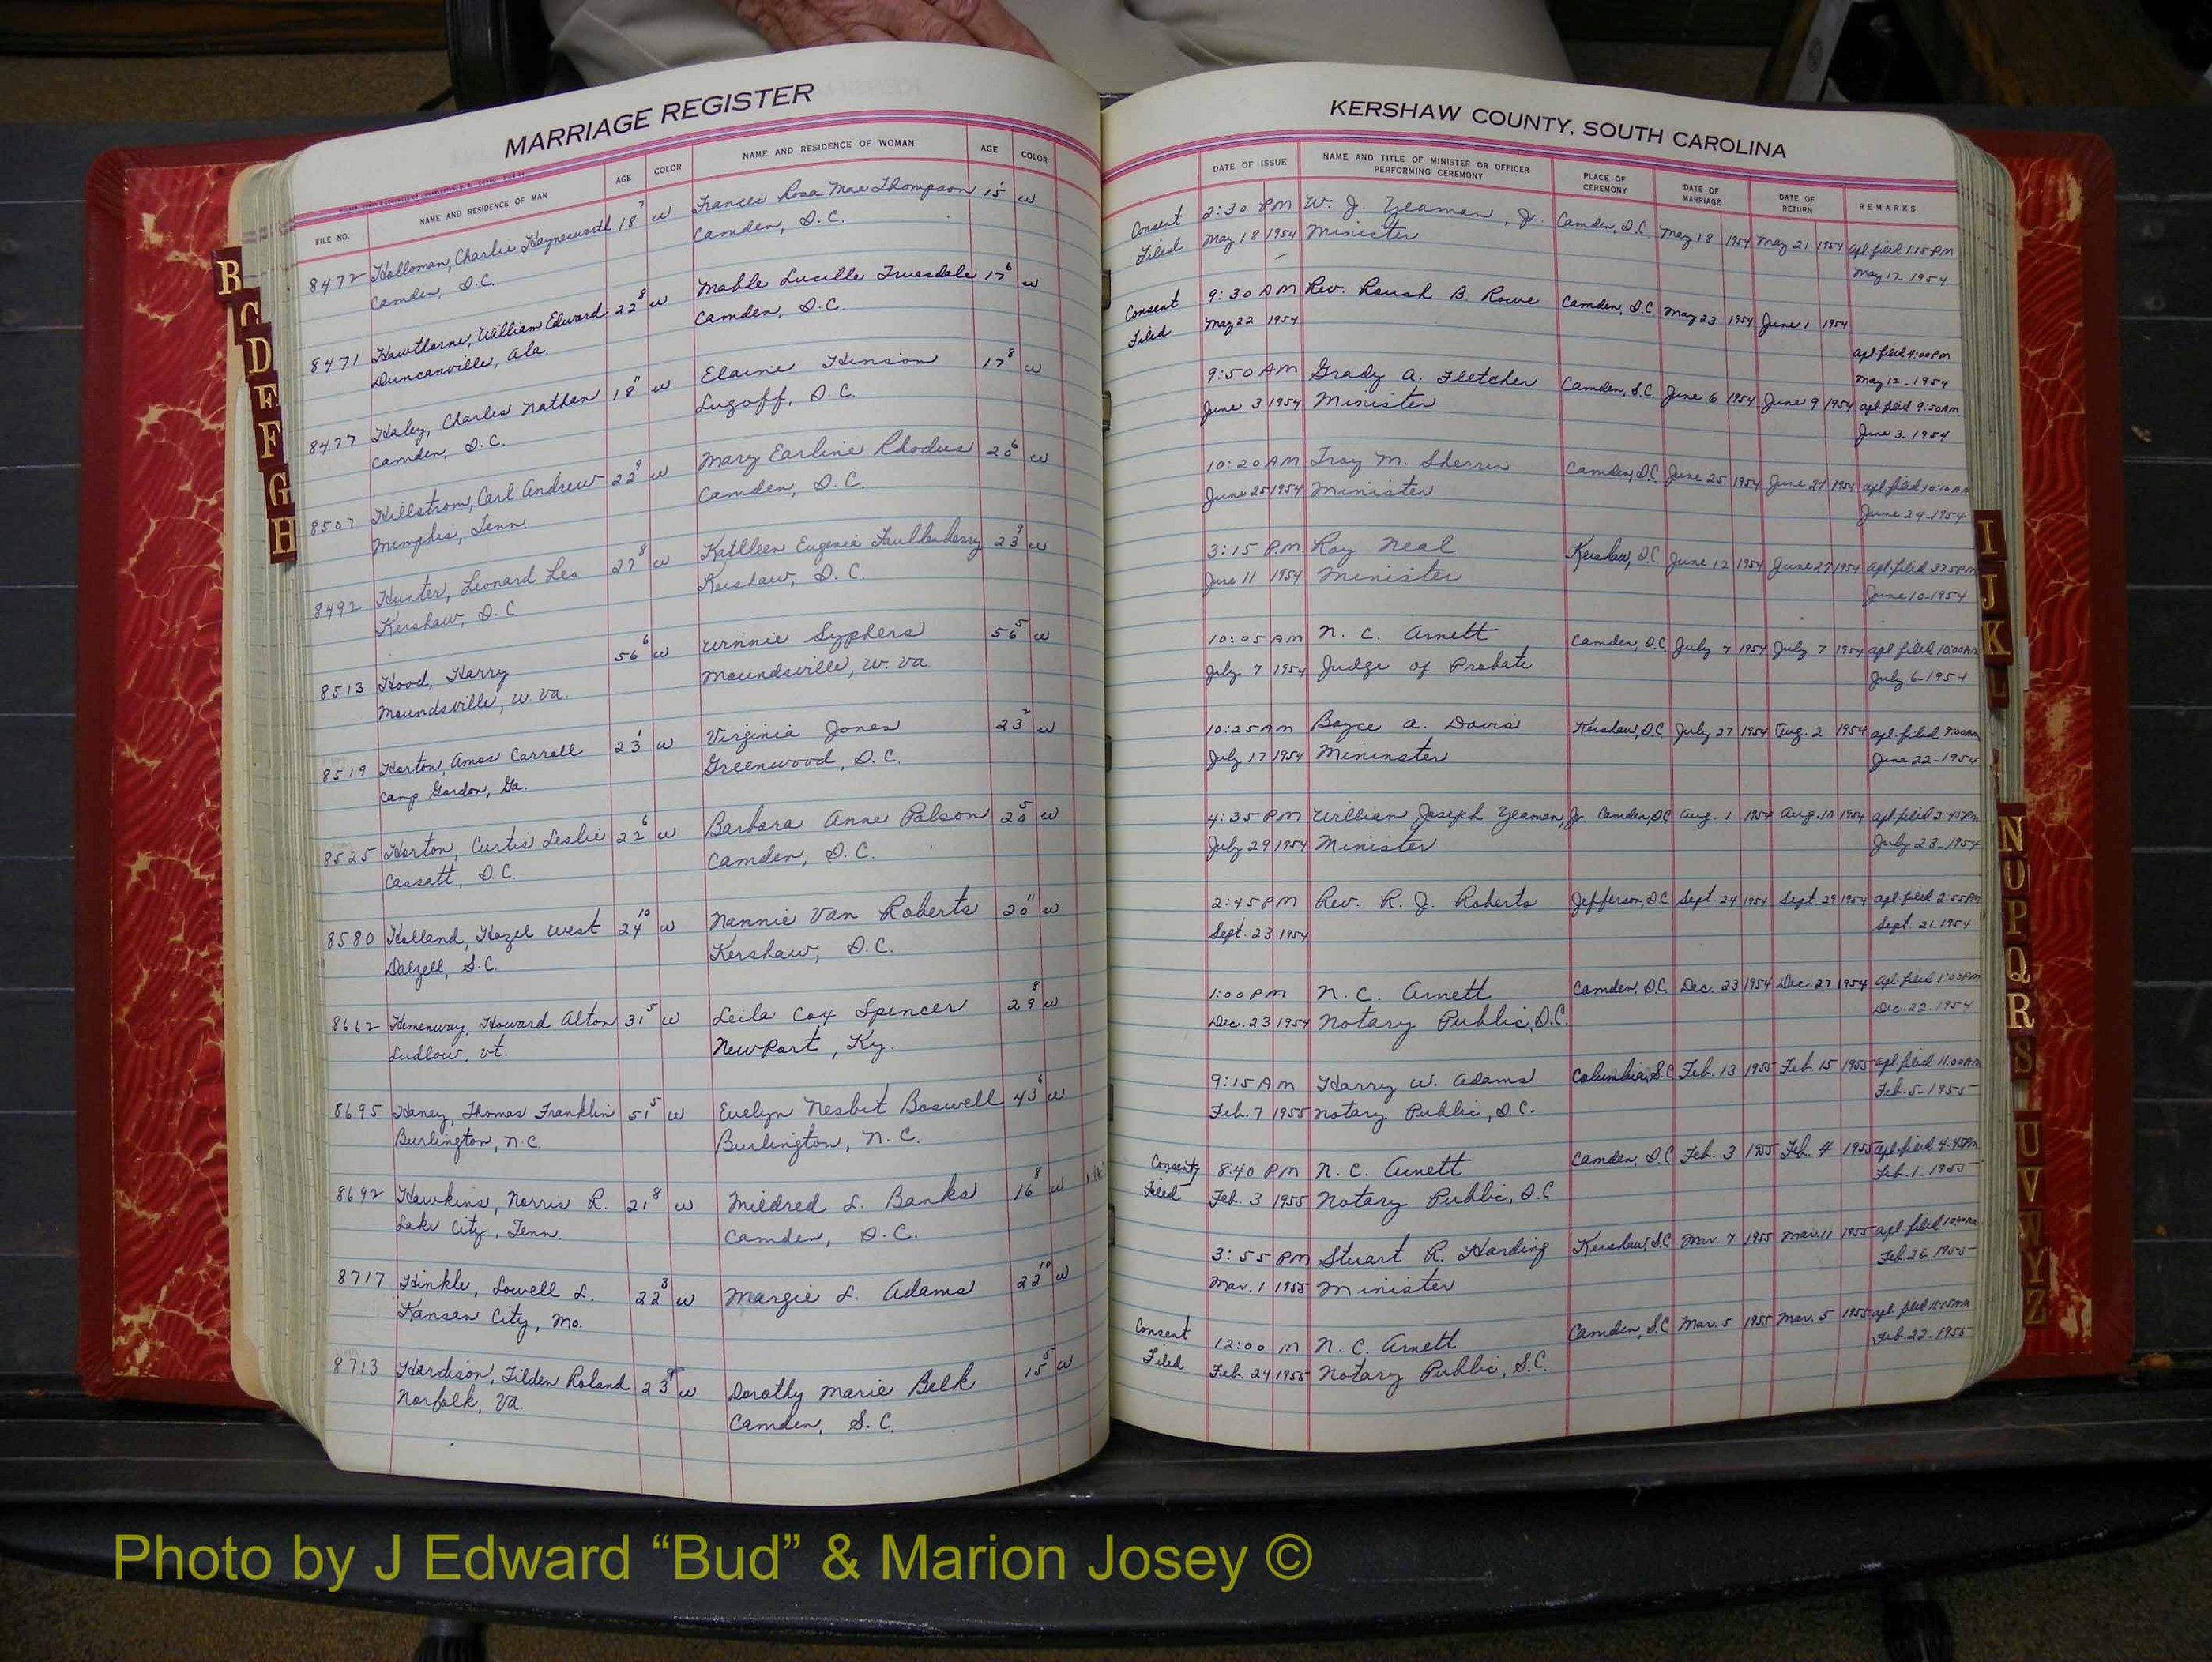 MARRIAGE REGISTER
FILE NO. NAME AND RESIDENCE OF MAN AGE COLOR NAME AND RESIDENCE OF WOMAN AGE COLOR
8472 Holloman, Charlie Haynesworth 18 7 w Frances Rosa Mae Thompson 15 1 w
Camden, S.C. Camden, S.C.
8471 Hawthorne, William Edward 22 8 w Mable Lucille Truesdale 17 6 w
Duncanville, Ala. Camden, S.C.
8477 Haley, Charles Nathan 18 11 w Elaine Hinson 17 8 w
Camden, S.C. Lugoff, S.C.
8507 Hillstrom, Carl Andrew 22 9 w Mary Earline Rhodus 20 6 w
Memphis, Tenn. Camden, S.C.
8492 Hunter, Leonard Leo 27 8 w Kathleen Eugenia Faulkenberry 23 9 w
Kershaw, S.C. Kershaw, S.C.
8513 Hood, Harry 56 6 w Winnie Syphers 56 5 w
Moundsville, W. Va. Moundsville, W. Va.
8519 Horton, Amos Carroll 23 1 w Virginia Jones 23 2 w
Camp Gordon, Ga. Greenwood, S.C.
8525 Horton, Curtis Leslie 22 6 w Barbara Anne Polson 20 5 w
Cassatt, S.C. Camden, S.C.
8580 Holland, Hazel West 24 10 w Nannie Van Roberts 20 11 w
Dalzell, S.C. Kershaw, S.C.
8662 Hemenway, Howard Alton 31 5 w Leila Cox Spencer 29 8 w
Ludlow, Vt. NewPort, Ky.
8695 Haney, Thomas Franklin 51 5 w Evelyn Nesbit Boswell 43 6 w
Burlington, N.C. Burlington, N.C.
8692 Hawkins, Norris R. 21 8 w Mildred L. Banks 16 8 w
Lake City, Tenn. Camden, S.C.
8717 Hinkle, Lowell L. 22 3 w Margie L. Adams 22 10 w
Kansas City, Mo.
8713 Hardison, Tilden Roland 23 9 w Dorothy Marie Belk 15 5 w
Norfolk, Va. Camden, S.C.
KERSHAW COUNTY, SOUTH CAROLINA
DATE OF ISSUE NAME AND TITLE OF MINISTER OR OFFICER PERFORMING CEREMONY PLACE OF CEREMONY DATE OF MARRIAGE DATE OF RETURN REMARKS
Consent 2:30 PM W. J. Yeaman, Jr. Camden, S.C. May 18 1954 May 21 1954 apl. filed 1:15 PM
Filed May 18 1954 Minister May 17-1954
Consent 9:30 AM Rev. Roush B. Rowe Camden, S.C. May 23 1954 June 1 1954
Filed May 22 1954 apl. filed 4:00 PM
May 12-1954
9:50 AM Grady A. Fletcher Camden, S.C. June 6 1954 June 9 1954 apl. filed 9:50 AM
June 3 1954 Minister June 3-1954
10:20 AM Troy M. Sherrin Camden, S.C. June 25 1954 June 27 1954 apl. filed 10:10 AM
June 25 1954 Minister June 24-1954
3:15 P.M. Roy Neal Kershaw, S.C. June 12 1954 June 27 1954 apl. filed 3:25 PM
June 11 1954 Minister June 10-1954
10:05 AM N. C. Arnett Camden, S.C. July 7 1954 July 7 1954 apl. filed 10:00 AM
July 7 1954 Judge of Probate July 6-1954
10:25 AM Boyce A. Davis Kershaw, S.C. July 27 1954 Aug. 2 1954 apl. filed 9:00 AM
July 17 1954 Mininster June 22-1954
4:35 PM William Joseph Yeaman, Jr. Camden, S.C. Aug. 1 1954 Aug. 10 1954 apl. filed 2:45 PM
July 29 1954 Minister July 23-1954
2:45 PM Rev. R. J. Roberts Jefferson, S.C. Sept. 24 1954 Sept. 29 1954 apl. filed 2:55 PM
Sept. 23 1954 Sept. 21-1954
1:00 PM N. C. Arnett Camden, S.C. Dec. 23 1954 Dec. 27 1954 apl. filed 1:00 PM
Dec. 23 1954 Notary Public, S.C. Dec. 22-1954
9:15 AM Harry W. Adams Columbia, S.C. Feb. 13 1955 Feb. 15 1955 apl. filed 11:00 AM
Feb. 7 1955 Notary Public, S.C. Feb. 5-1955
Consent 8:40 PM N. C. Arnett Camden, S.C. Feb. 3 1955 Feb. 4 1955 apl. filed 4:45 PM
Filed Feb. 3 1955 Notary Public, S.C. Feb. 1-1955
3:55 PM Stuart R. Harding Kershaw, S.C. Mar. 7 1955 Mar. 11 1955 apl. filed
Mar. 1 1955 Minister Feb. 26-1955
Consent 12:00 M N. C. Arnett Camden, S.C. Mar. 5 1955 Mar. 5 1955 apl. filed
Filed Feb. 24 1955 Notary Public, S.C. Feb. 22-1955
B
C
D
E
F
G
H
I
J
K
L
N
O
P
Q
R
S
U
V
W
Y
Z
Photo by J Edward “Bud” & Marion Josey ©